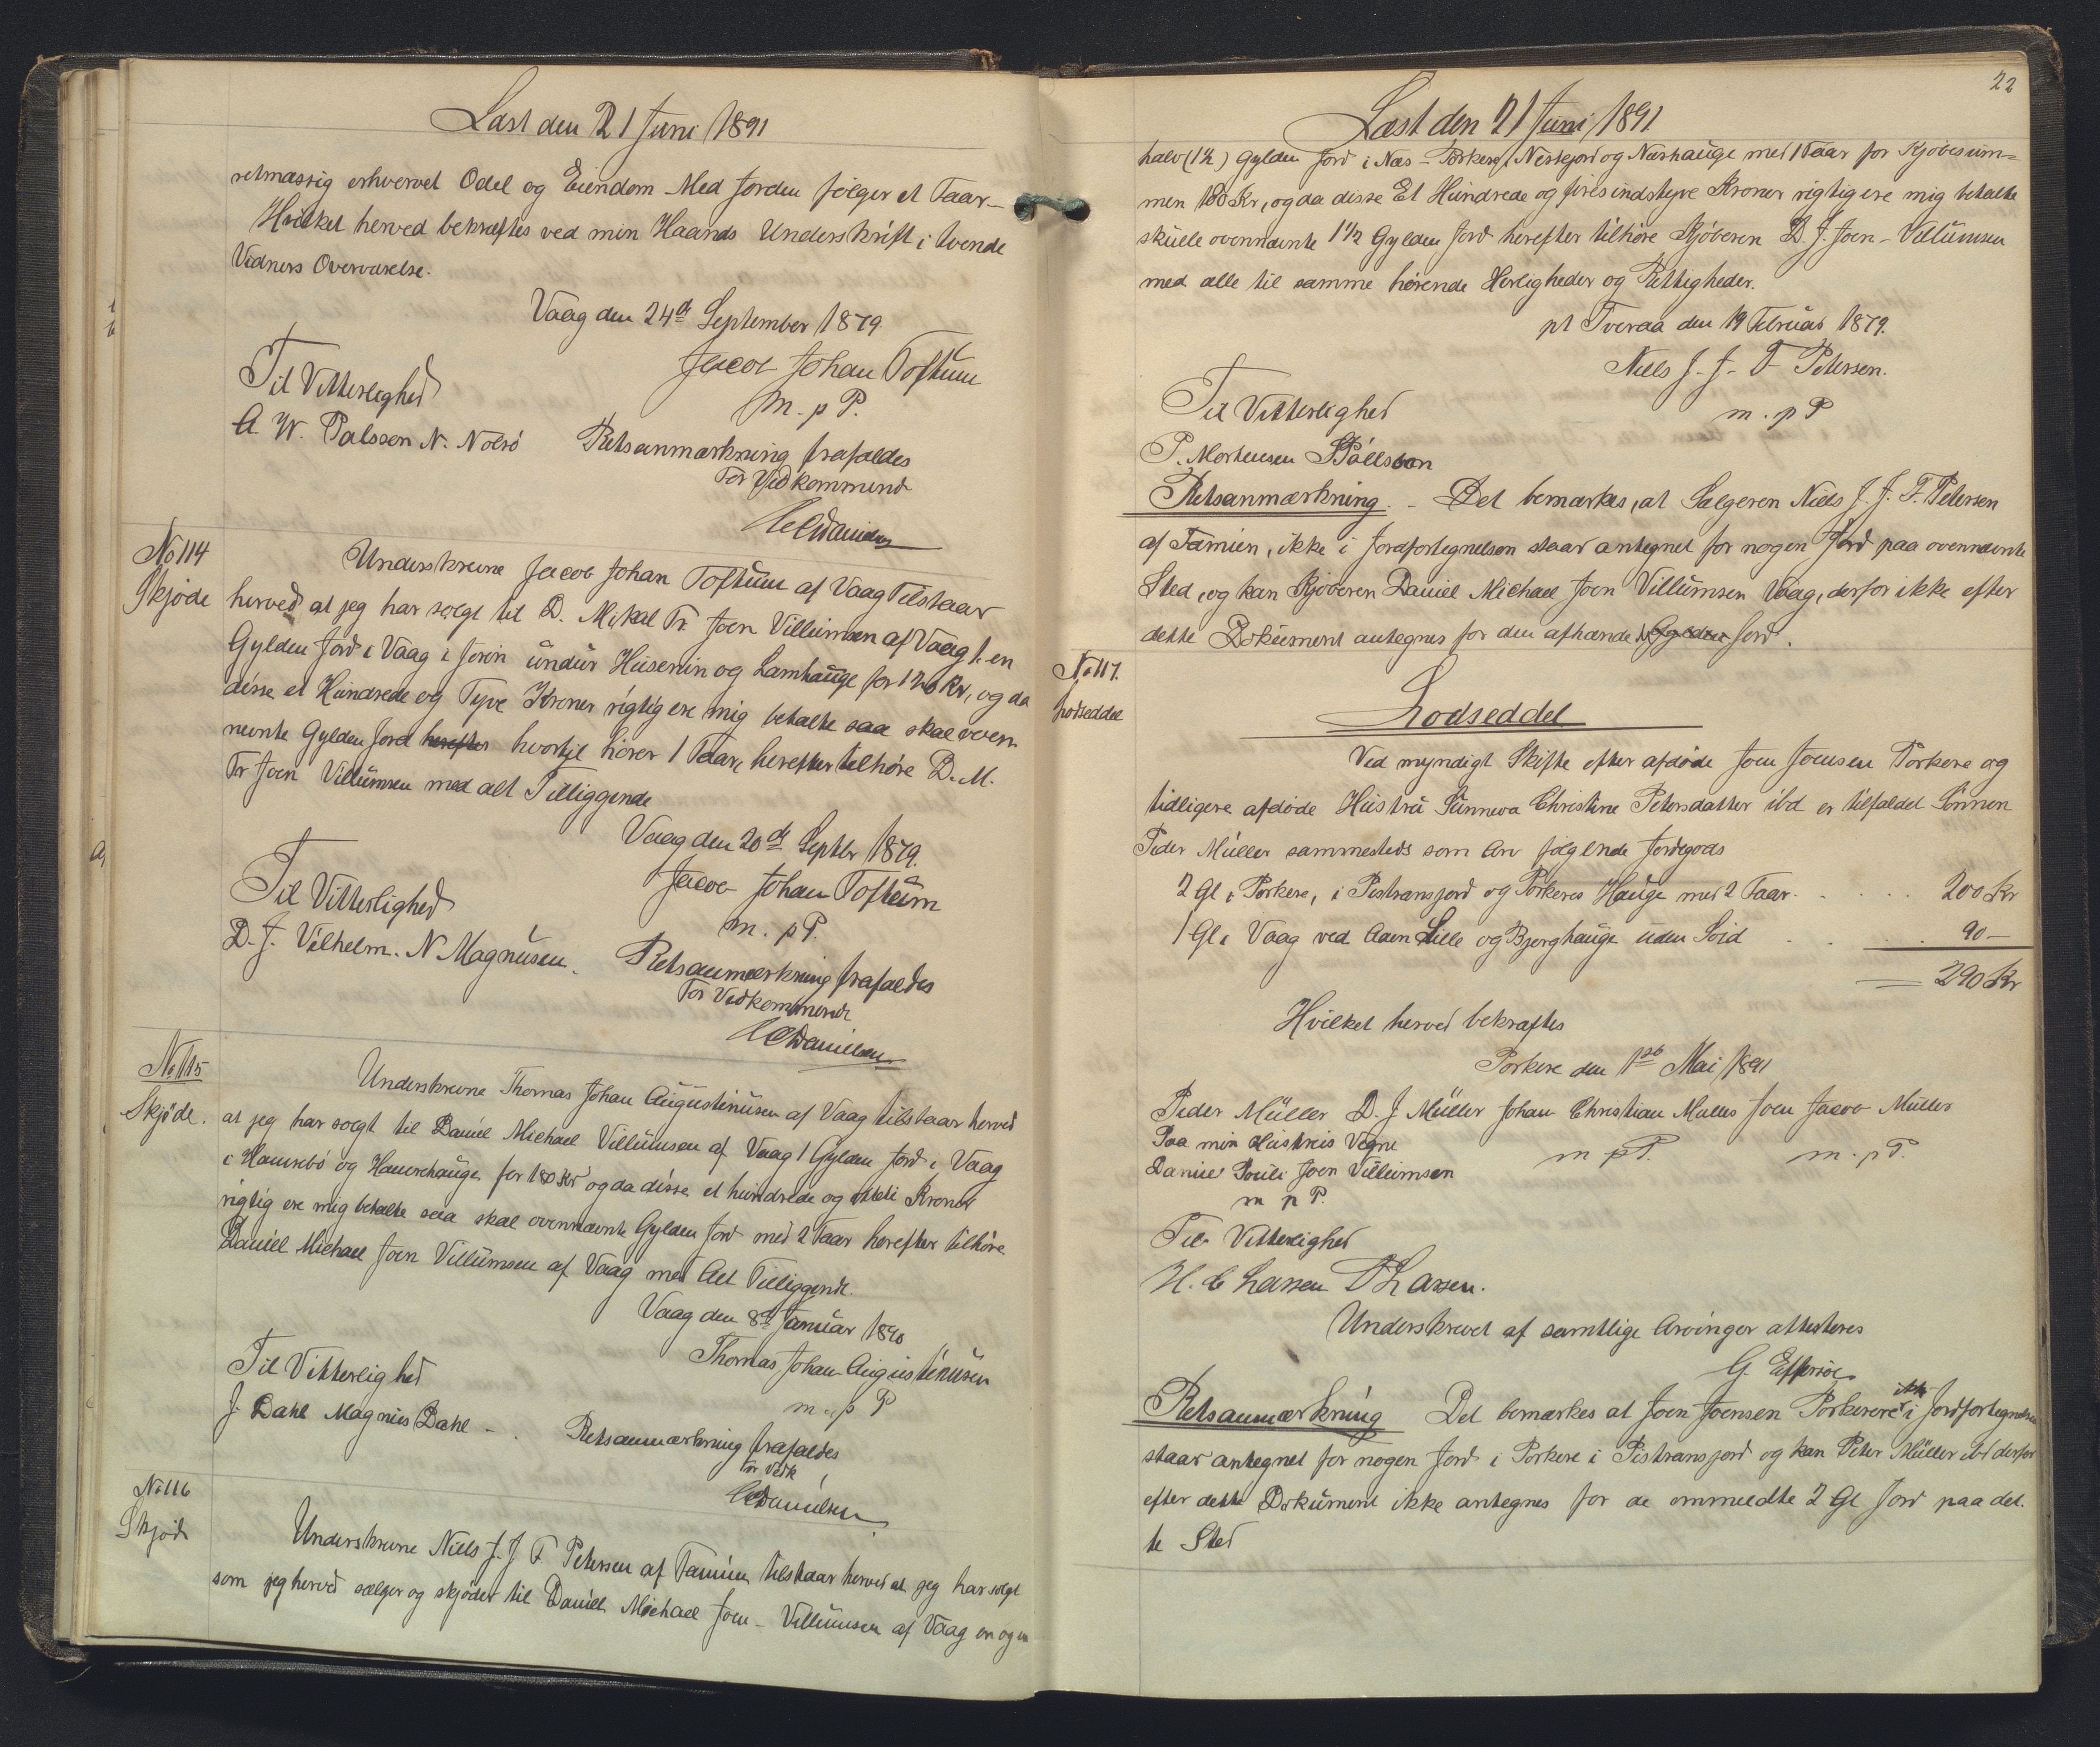 Læst den 21 Juni 1891
retmæssig erhvervet Odel og Eiendom Med Jorden følger et Faar_
Hvilket herved bekræftes ved min Haands Underskrift i tvende
Vidners Overværelse.
Vaag den 24de September 1879.
Til Vitterlighed
Jacob Johan Toftum
m. p P.
A. W. Palsson N. Nolsö
Retsanmærkning frafaldes
For Vedkommend
No 114
Skjøde
Underskrevne Jacob Johan Toftum af Vaag Tilstaar
herved at jeg har solgt til D. Mikal Fr. Joen Villumsen af Vaag 1. en
Gylden Jord i Vaag i Jorin undur Husenin og Lamhauge for 120 Kr, og da
disse et Hundrede og Tyve Kroner rigtig ere mig betalte saa skal oven
nevnte Gylden Jord herefter hvortil hører 1 Faar, herefter tilhøre D. M.
Fr Joen Villumsen med alt Tilliggende
Vaag den 20de Septbr 1879.
Til Vitterlighed
Jacob Johan Toftum
m. p P.
D. J. Vilhelm. N Magnusen.
Retsanmærkning frafaldes
For Vedkommende
Danielsen
No 115
Skjøde.
Underskrevne Thomas Johan Augustinusen af Vaag tilstaar herved
at jeg har solgt til Daniel Michael Villumsen af Vaag 1 Gylden Jord i Vaag
i Hamrebö og Hamrehauge for 180 Kr og da disse et hundrede og otteti Kroner
rigtig ere mig betalte saa skal ovennævnte Gylden Jord med 2 Faar herefter tilhøre
Daniel Michael Joen Villumsen af Vaag med Alt Tilliggende.
Vaag den 8de Januar 1890
Til Vitterlighed
Thomas Johan Augustinusen
m. p P
J. Dahl Magnus Dahl _ .
Retsanmærkning frafaldes
For Vedk
Danielsen
No 116
Skjøde
Underskrevne Niels J. J F Petersen af Famien tilstaar herved at jeg har solgt
som jeg herved sælger og skjøder til Daniel Michael Joen _ Villumsen af Vaag en og en
22
Læst den 21 Juni 1891
halv (1½) Gylden Jord i Næs _ Porkere i Neskejord og Næshauge med 1 Faar for Kjøbesum=
men 180 Kr, og da disse Et Hundrede og firesindstyve Kroner rigtig ere mig betalte
skulle ovennævnte 1½ Gylden Jord herefter tilhøre Kjøberen D. J. Joen _ Villumsen
med alle til samme hørende Herligheder og Rettigheder.
pt Tveraa den 19 Februar 1879.
Niels J. J. F Petersen.
Til Vitterlighed
m. p P
P. Mortensen Pállsson
Retsanmærkning. _ Det bemærkes, at Sælgeren Niels J. J. F. Petersen
af Famien, ikke i Jordfortegnelsen staar antegnet for nogen Jord paa ovennævnte
Sted, og kan Kjøberen Daniel Michael Joen Villumsen Vaag, derfor ikke efter
dette Dokument antegnes for den afhændede Gylden Jord.
No 117.
Lodseddel
Lodseddel
Ved myndigt Skifte efter afdøde Joen Joensen Porkere og
tidligere afdøde Hustru Sunneva Christine Petersdatter ibd er tilfaldet Sønnen
Peder Müller sammesteds som Arv følgende Jordegods
2 Gl i Porkere, i Pistransjord og Porkeres Hauge med 2 Faar . . . 200 Kr
1 Gl i Vaag ved Aaen Lille og Bjerghauge uden Soid . . . 90 _
290 Kr
Hvilket herved bekræftes
Porkere den 1ste Mai 1891
Peder Müller D. J Müller Johan Christian Muller Joen Jacob Müller
Paa min Hustrus Vegne
m p P.
m. p P.
Daniel Pouli Joen Villumsen
m p P.
Til Vitterlighed
H. C Larsen Larsen.
Underskrevet af samtlige Arvinger attesteres
G. Effersøe
Retsanmærkning Det bemærkes at Joen Joensen Porkere ikke i Jordfortegnelsen
staar antegnet for nogen Jord i Porkere i Pistransjord og kan Peter Müller ibd derfor
efter dette Dokument ikke antegnes for de ommeldte 2 Gl Jord paa det.
te Sted